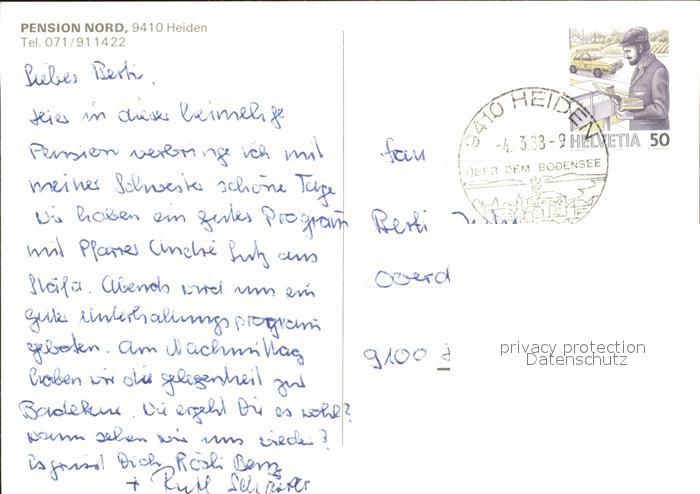 PENSION NORD, 9410 Heiden
Tel. 071/911422
Liebes Berti.
Hier in dieser heimelige
Pension verbringe ich mit
meiner Schwester schöne Tage
Wir haben ein gutes Program
mit Pfarrer André Lutz aus
Stäfa. Abends wird uns ein
gutes Unterhaltungsprogram
geboten. Am Nachmittag
haben wir die gelegenheit zur
Badekur. Wie ergeht Dir es wohl?
wann sehen wir uns wieder?
Es grüsst Dich Rösli Benz
+ Ruth
9410 HEIDEN
-4.3.88-9
ÜBER DEM BODENSEE
HELVETIA 50
Frau
Berti
Oberd
9100
privacy protection
Datenschutz